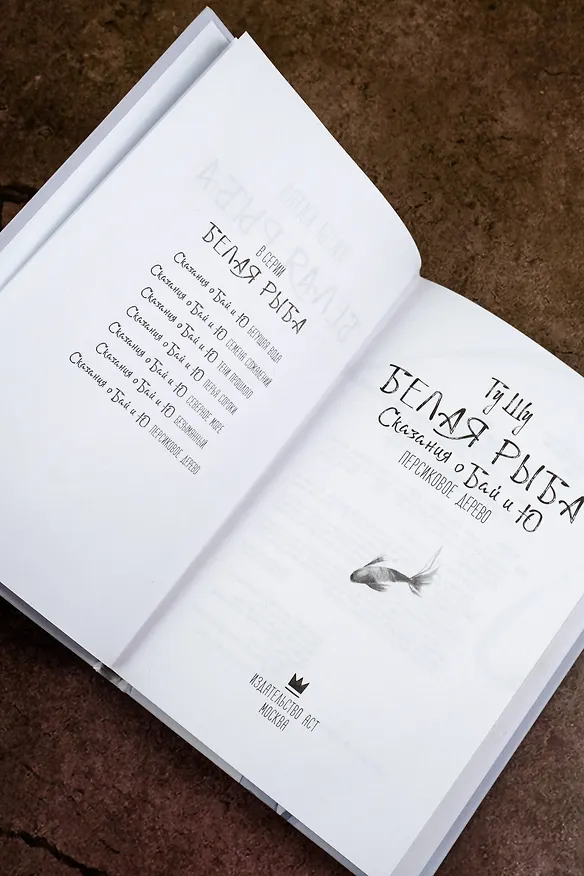 В СЕРИИ
БЕЛАЯ РЫБА
Сказания о Бай и Ю БЕГУЩАЯ ВОДА
Сказания о Бай и Ю СЕМЕНА СОЖАЛЕНИЙ
Сказания о Бай и Ю ТЕНИ ПРОШЛОГО
Сказания о Бай и Ю ПЕРЬЯ СОРОКИ
Сказания о Бай и Ю СЕВЕРНОЕ МОРЕ
Сказания о Бай и Ю БЕЗЫМЯННЫЙ
Сказания о Бай и Ю ПЕРСИКОВОЕ ДЕРЕВО
Ту Шу
БЕЛАЯ РЫБА
Сказания о Бай и Ю
ПЕРСИКОВОЕ ДЕРЕВО
ИЗДАТЕЛЬСТВО АСТ
МОСКВА